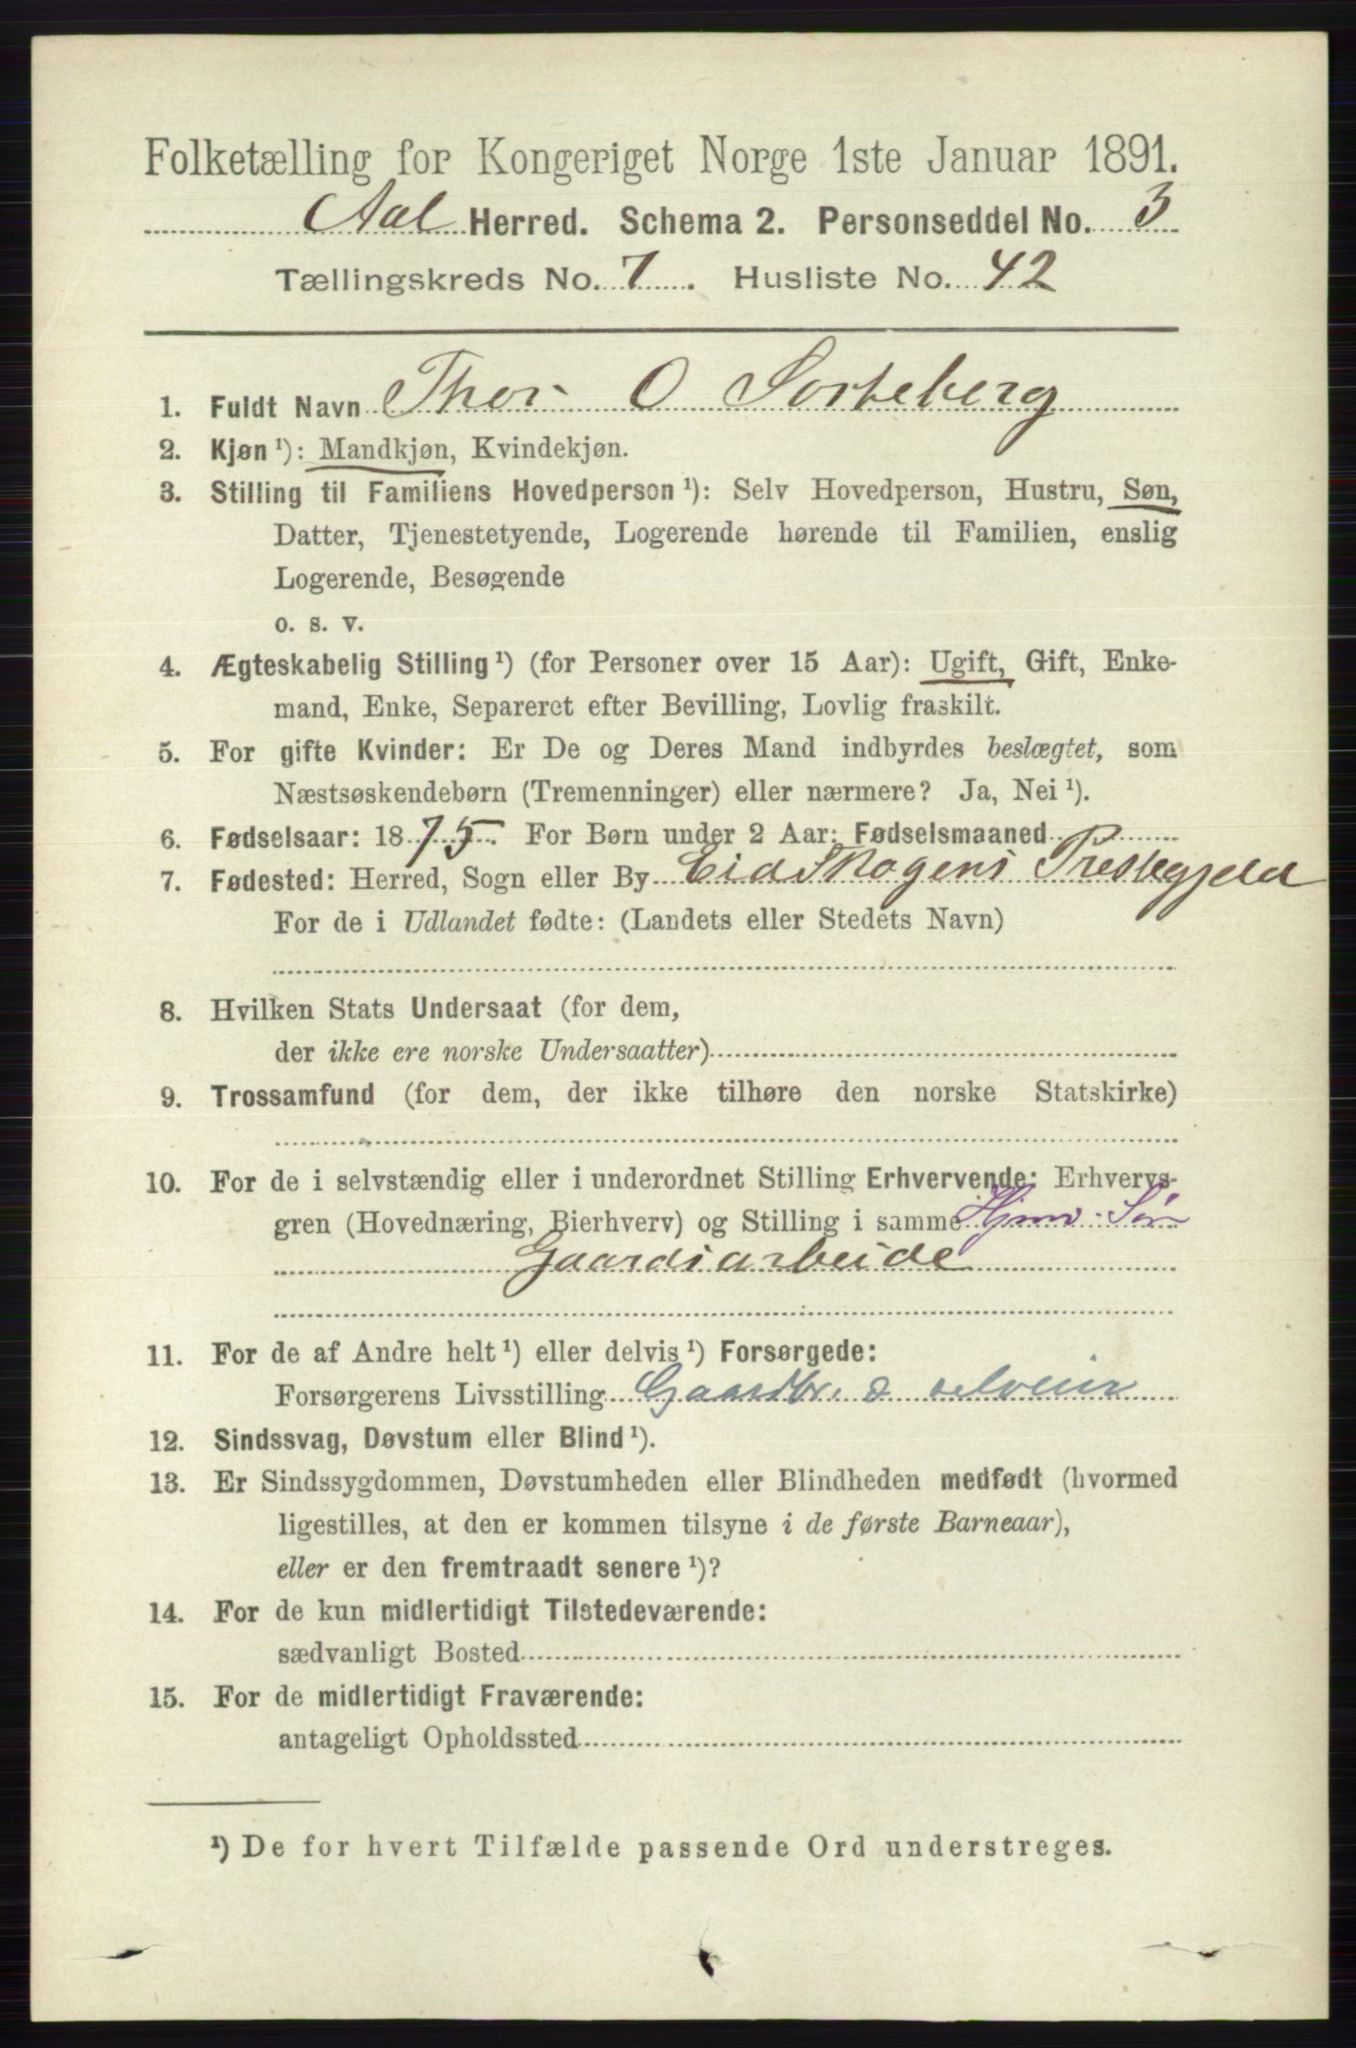 Folketælling for Kongeriget Norge 1ste Januar 1891.
Aal Herred. Schema 2. Personseddel No. 3
Tællingskreds No. 7. Husliste No. 42
1. Fuldt Navn Thor O Sorteberg
2. Kjøn ¹): Mandkjøn, Kvindekjøn.
3. Stilling til Familiens Hovedperson ¹): Selv Hovedperson, Hustru, Søn,
Datter, Tjenestetyende, Logerende hørende til Familien, enslig
Logerende, Besøgende
o. s. v.
4. Ægteskabelig Stilling ¹) (for Personer over 15 Aar): Ugift, Gift, Enke-
mand, Enke, Separeret efter Bevilling, Lovlig fraskilt.
5. For gifte Kvinder: Er De og Deres Mand indbyrdes beslægtet, som
Næstsøskendebørn (Tremenninger) eller nærmere? Ja, Nei ¹).
6. Fødselsaar: 1875. For Børn under 2 Aar: Fødselsmaaned
7. Fødested: Herred, Sogn eller By EidSkogens Prestegjeld
For de i Udlandet fødte: (Landets eller Stedets Navn)
8. Hvilken Stats Undersaat (for dem,
der ikke ere norske Undersaatter)
9. Trossamfund (for dem, der ikke tilhøre den norske Statskirke)
10. For de i selvstændig eller i underordnet Stilling Erhvervende: Erhvervs-
gren (Hovednæring, Bierhverv) og Stilling i samme Hjmv. Søn
Gaardsarbeide
11. For de af Andre helt ¹) eller delvis ¹) Forsørgede:
Forsørgerens Livsstilling Gaardbr. & selveier
12. Sindssvag, Døvstum eller Blind ¹).
13. Er Sindssygdommen, Døvstumheden eller Blindheden medfødt (hvormed
ligestilles, at den er kommen tilsyne i de første Barneaar),
eller er den fremtraadt senere ¹)?
14. For de kun midlertidigt Tilstedeværende:
sædvanligt Bosted
15. For de midlertidigt Fraværende:
antageligt Opholdssted
¹) De for hvert Tilfælde passende Ord understreges.